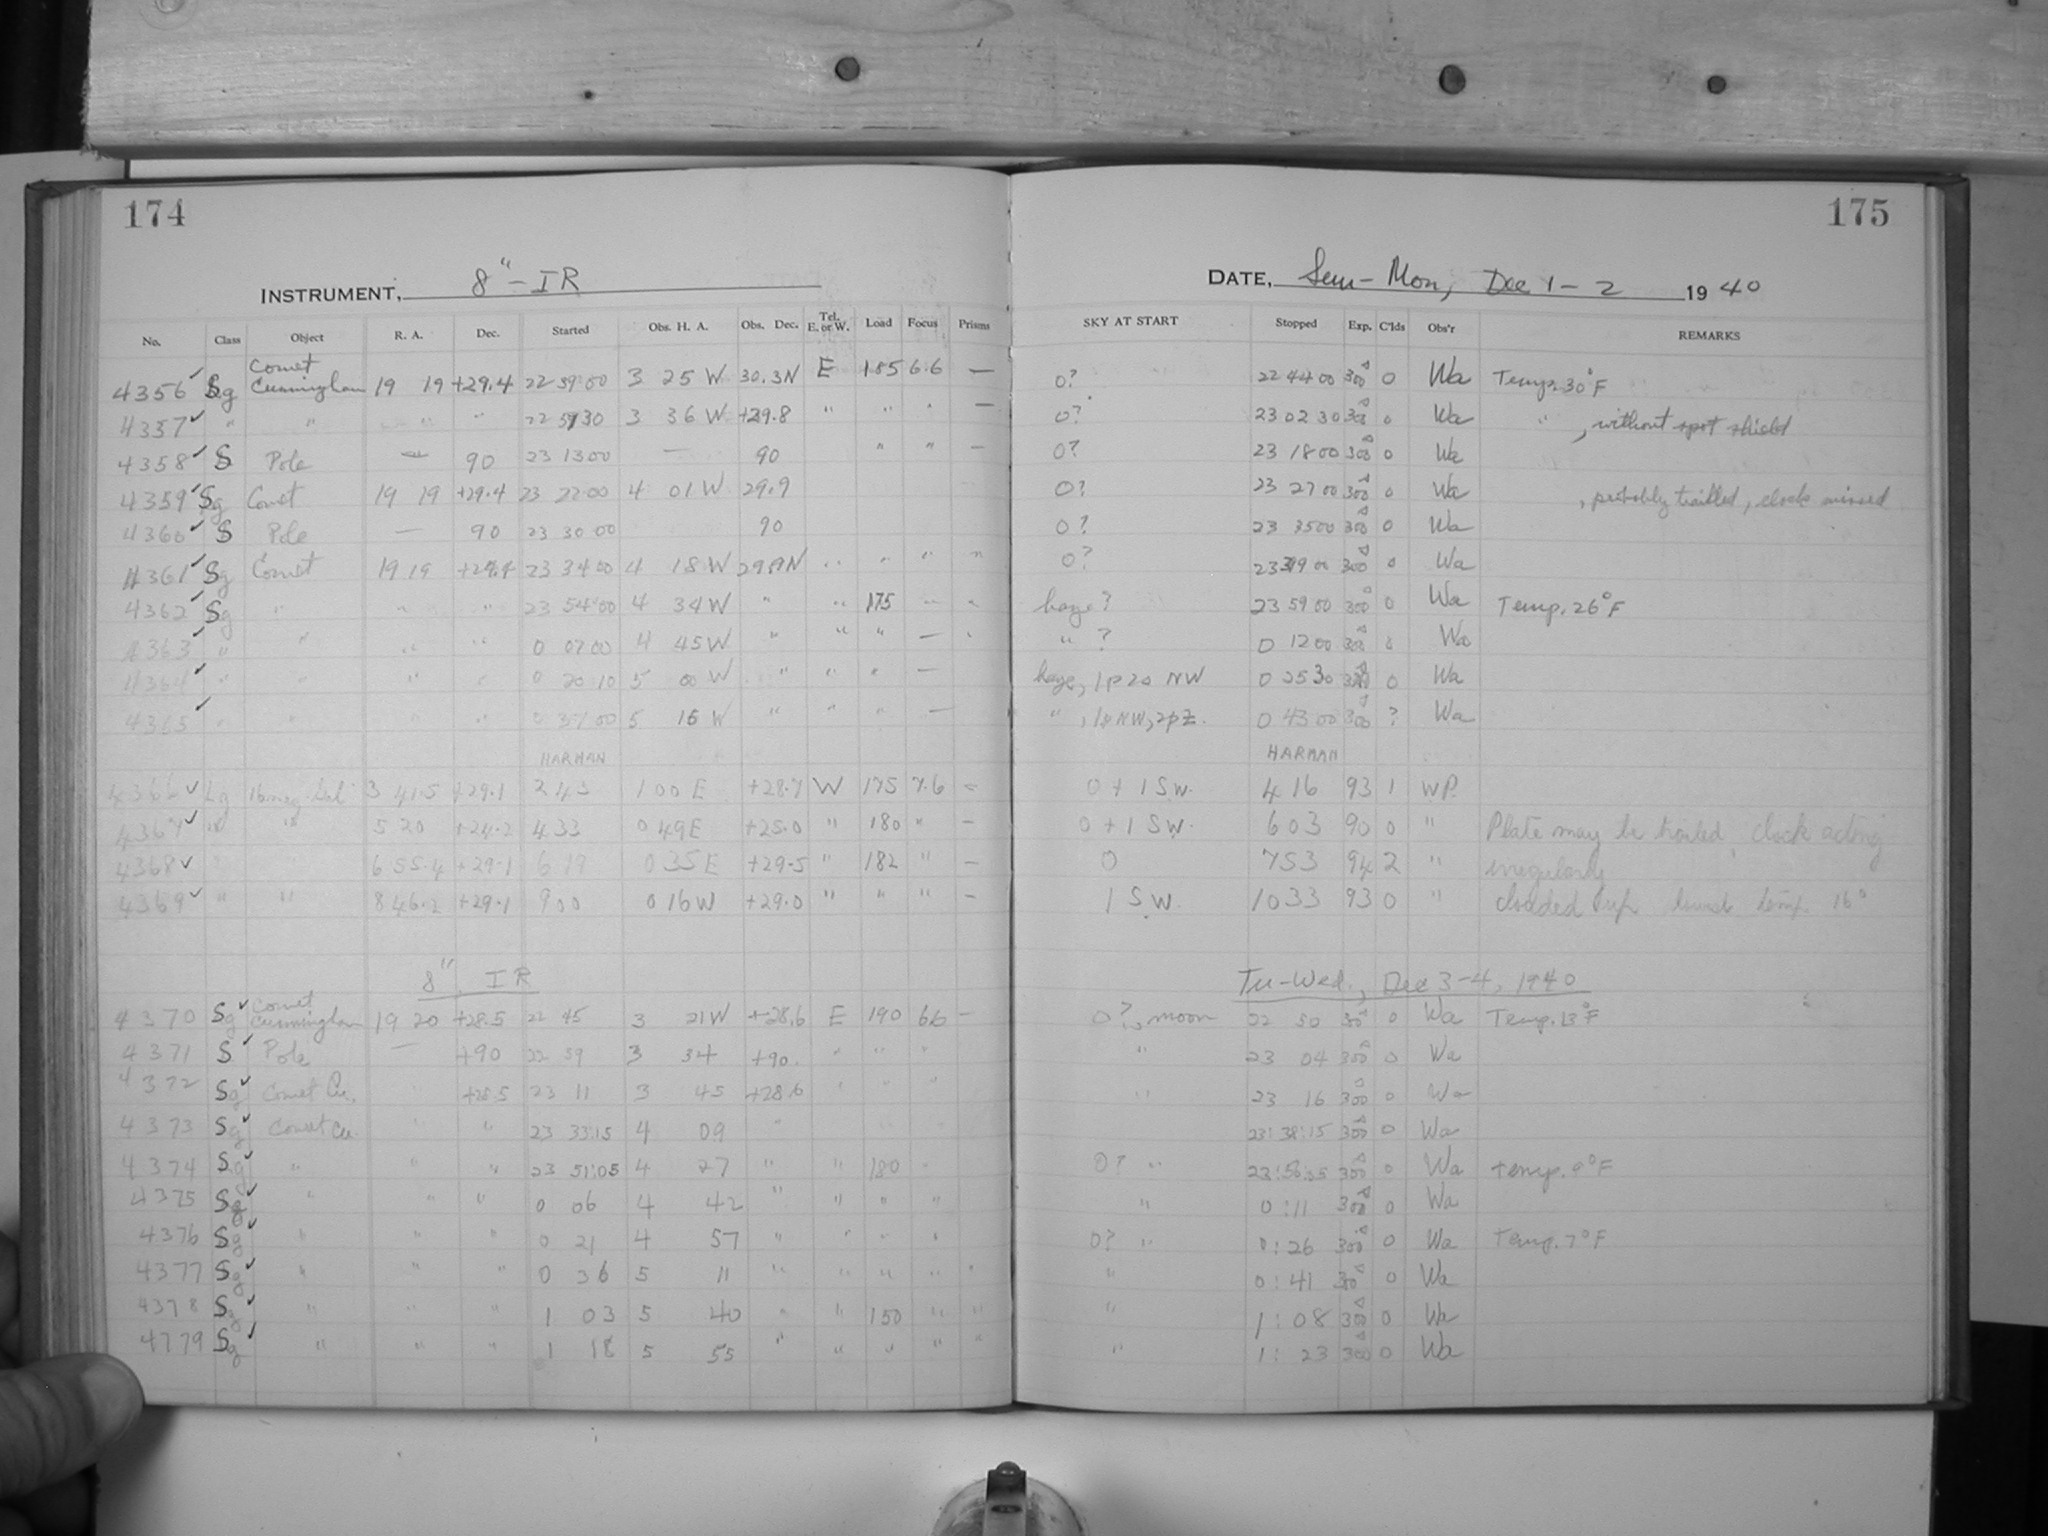 174
INSTRUMENT, 8" - IR
No. Class Object R. A. Dec. Started Obs. H. A. Obs. Dec. Tel. E. or W. Load Focus Prisms
4356 ✓ Sg Comet Cunningham 19 19 +29.4 22 39 00 3 25 W 30.3N E 185 6.6 —
4357 ✓ " " " " 22 57 30 3 36 W +29.8 " " " —
4358 ✓ S Pole — 90 23 13 00 — 90 " " —
4359 ✓ Sg Comet 19 19 +29.4 23 22 00 4 01 W 29.9
4360 ✓ S Pole — 90 23 30 00 90
4361 ✓ Sg Comet 19 19 +29.4 23 34 00 4 18 W " " " "
4362 ✓ Sg " " " 23 54 00 4 34 W " " 175 — "
4363 ✓ " " " " 0 07 00 4 45 W " " " — "
4364 ✓ " " " " 0 20 10 5 00 W " " " —
4365 ✓ " " " " 0 00 5 16 W " " " —
HARMAN
4366 ✓ Lg 16 mag. Gal. 3 41.5 +29.1 2 43 1 00 E +28.7 W 175 7.6 –
4367 ✓ " " 5 20 +24.2 4 33 0 49 E +25.0 " 180 " –
4368 ✓ " " 6 55.4 +29.1 6 19 0 35 E +29.5 " 182 " –
4369 ✓ " " 8 46.2 +29.1 9 00 0 16 W +29.0 " " " –
8" IR
4370 Sg ✓ Comet Cunningham 19 20 +28.5 22 45 3 21 W +28.6 E 190 66 –
4371 S ✓ Pole — +90 22 59 3 34 +90. " " "
4372 Sg ✓ Comet Cu. " +28.5 23 11 3 45 +28.6 " " "
4373 Sg ✓ Comet Cu. " " 23 33:15 4 09 "
4374 Sg ✓ " " " 23 51:05 4 27 " " 180 "
4375 Sg ✓ " " " 0 06 4 42 " " " "
4376 Sg ✓ " " " 0 21 4 57 " " " "
4377 Sg ✓ " " " 0 36 5 11 " " " " "
4378 Sg ✓ " " " 1 03 5 40 " " 150 " "
4779 Sg ✓ " " " 1 18 5 55 " " " " "
175
DATE, Sun - Mon, Dec 1 - 2 1940
SKY AT START Stopped Exp. C'lds Obs'r REMARKS
0? 22 44 00 300 0 Wa Temp. 30°F
0? 23 02 30 300 0 Wa " , without spot shield
0? 23 18 00 300 0 Wa
0? 23 27 00 300 0 Wa , probably trailed, clock missed
0? 23 35 00 300 0 Wa
0? 23 39 00 300 0 Wa
haze? 23 59 00 300 0 Wa Temp. 26°F
" ? 0 12 00 300 0 Wa
haze, 1p20 NW 0 25 30 0 Wa
" , 1p NW, 2pZ. 0 43 00 300 ? Wa
HARMAN
0 + 1 S.W. 4 16 93 1 WP.
0 + 1 S.W. 6 03 90 0 " Plate may be trailed, clock acting
0 7 53 94 2 " irregularly
1 S.W. 10 33 93 0 " clouded up temp. 16°
Tu-Wed., Dec 3-4, 1940
0?, moon 22 50 300 0 Wa Temp. 13°F
" 23 04 300 0 Wa
" 23 16 300 0 Wa
23:38:15 300 0 Wa
0? " 23:56:05 300 0 Wa temp. 9°F
" 0:11 300 0 Wa
0? " 0:26 300 0 Wa Temp. 7°F
" 0:41 300 0 Wa
" 1:08 300 0 Wa
" 1:23 300 0 Wa